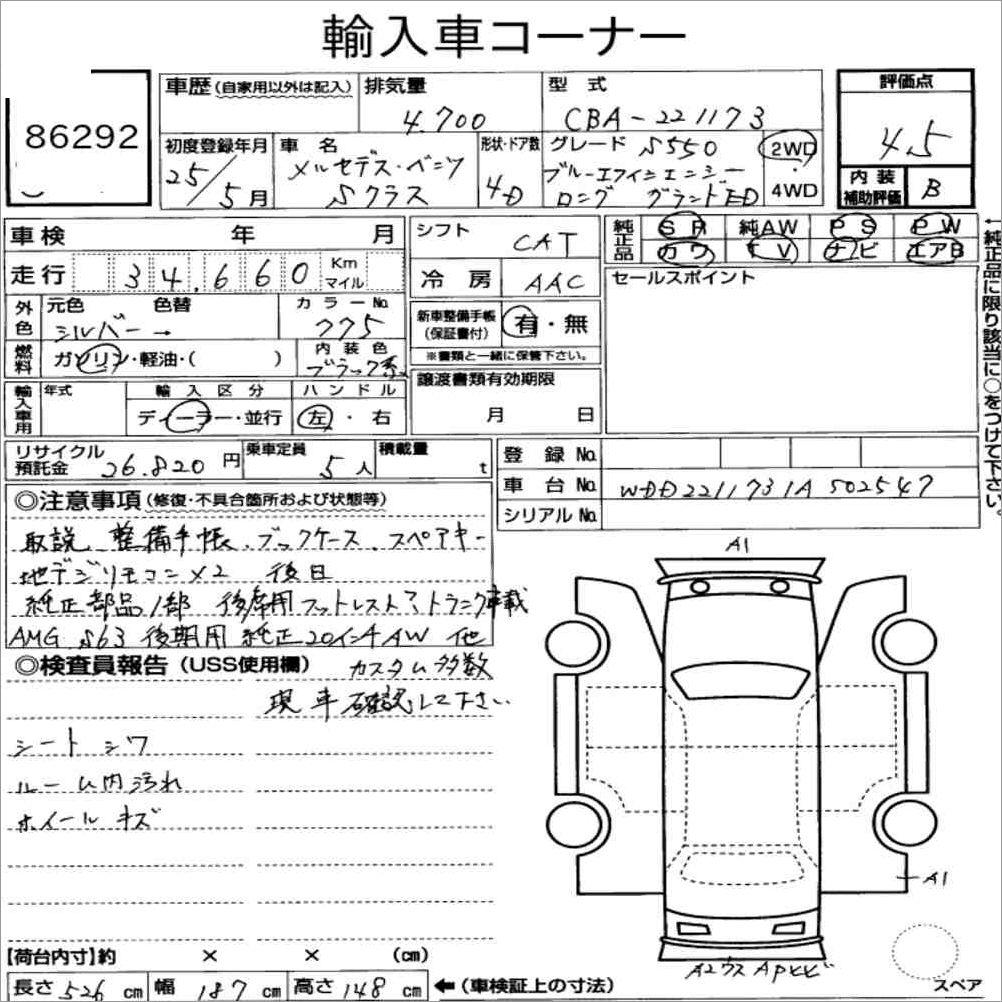 輸入車コーナー
86292
車歴 (自家用以外は記入) 排気量 型式 評価点
4.700 CBA-221173 4.5
初度登録年月 車名 形状・ドア数 グレード S550 2WD
25/5月 メルセデス・ベンツ Sクラス 4D ブルーエフィシェンシー ・
ロング グランドED 4WD
内装補助評価 B
車検 年 月 シフト CAT 純正品 SR 純AW PS PW
カワ TV ナビ エアB
走行 34,660 Km マイル 冷房 AAC セールスポイント
外色 元色 色替 カラーNo.
シルバー → 775
新車整備手帳 (保証書付) 有・無
※書類と一緒に保管下さい。
燃料 ガソリン・軽油・( ) 内装色 ブラック系
輸入車用 年式 輸入区分 ハンドル 譲渡書類有効期限
ディーラー・並行 左・右 月 日
←純正品に限り該当に○をつけて下さい。
リサイクル預託金 26.820円 乗車定員 5人 積載量 t
登録No.
車台No. WDD2211731A502547
シリアルNo.
◎注意事項 (修復・不具合箇所および状態等)
取説、整備手帳、ブックケース、スペアキー
地デジリモコン×2 後日
純正部品1部 後席用フットレスト トランク積載
AMG S63 後期用 純正20インチAW 他
◎検査員報告 (USS使用欄) カスタム多数
現車確認して下さい
シートシワ
ルーム内汚れ
ホイールキズ
A1
A1
A2
【荷台内寸】約 × × (cm)
長さ 526 cm 幅 187 cm 高さ 148 cm ←(車検証上の寸法)
スペア